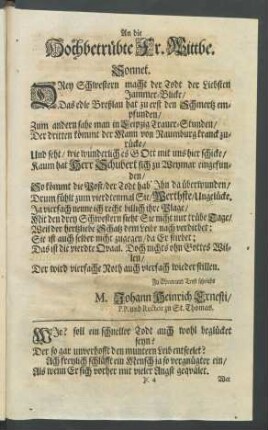 An die
Hochbetrübte Fr. Wittbe.
Sonnet.
DRey Schwestern macht der Todt der Liebsten
Jammer-Blicke/
Das edle Breßlau hat zu erst den Schmertz em-
pfunden/
Zum andern sahe man in Leipzig Trauer-Stunden/
Der dritten kömmt der Mann von Naumburg kranck zu-
rücke/
Und seht/ wie wunderlich es GOtt mit uns hier schicke/
Kaum hat Herr Schubert sich zu Weymar eingefun-
den/
So kömmt die Post/ der Todt hab' Ihn da überwunden/
Drum fühlt zum vierdtenmal Sie/ Wertheste/ Unglücke,
Ja vierfach nenne ich recht billich ihre Plage/
Mit den drey Schwestern sieht Sie nicht nur trübe Tage/
Weil der hertzliebe Schatz dem Leibe nach verdirbet:
Sie ist auch selber nicht zugegen/ da Er stirbet;
Das ist die vierdte Qvaal. Doch nichts ohn Gottes Wil-
len/
Der wird vierfache Noth auch vierfach wieder stillen.
M. Johann Heinrich Ernesti/
P.P. und Rector zu St. Thomas.
WIe? soll ein schneller Todt auch wohl beglücket
seyn/
Der so gar unverhofft den muntern Leib entseelet?
Ach freylich schläfft ein Mensch ja so vergnügter ein/
Als wenn Er sich vorher mit vieler Angst geqvälet.